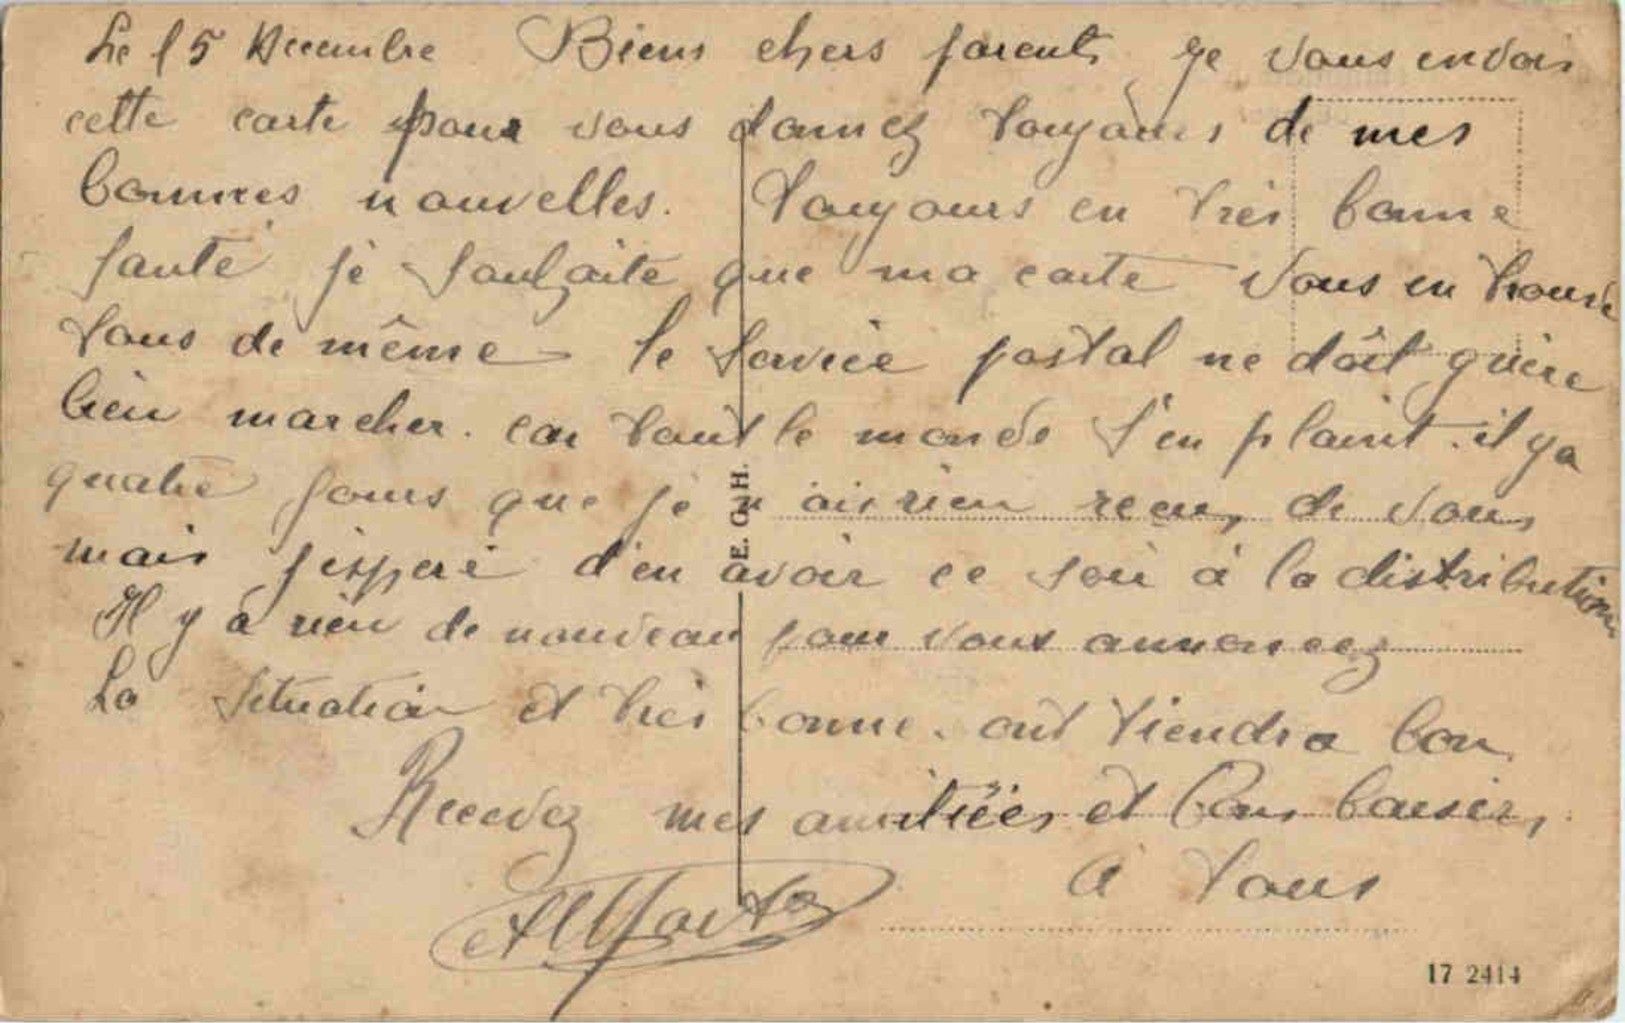 Le 15 Decembre Biens chers parents Je vous envois
cette carte pour vous donnez toujours de mes
bonnes nouvelles. Toujours en très bonne
santé je souhaite que ma carte vous en trouve
tous de même le service postal ne doit guère
bien marcher. car tout le monde s'en plaint. il y a
quatre jours que je n'ais rien recus de vous
mais j'espère d'en avoir ce soir à la distribution
Il y à rien de nouveau pour vous annoncez
La situation et très bonne. ont tiendra bon
Recevez mes amitiées et bons baisers
à tous
E. C. H.
17 2414